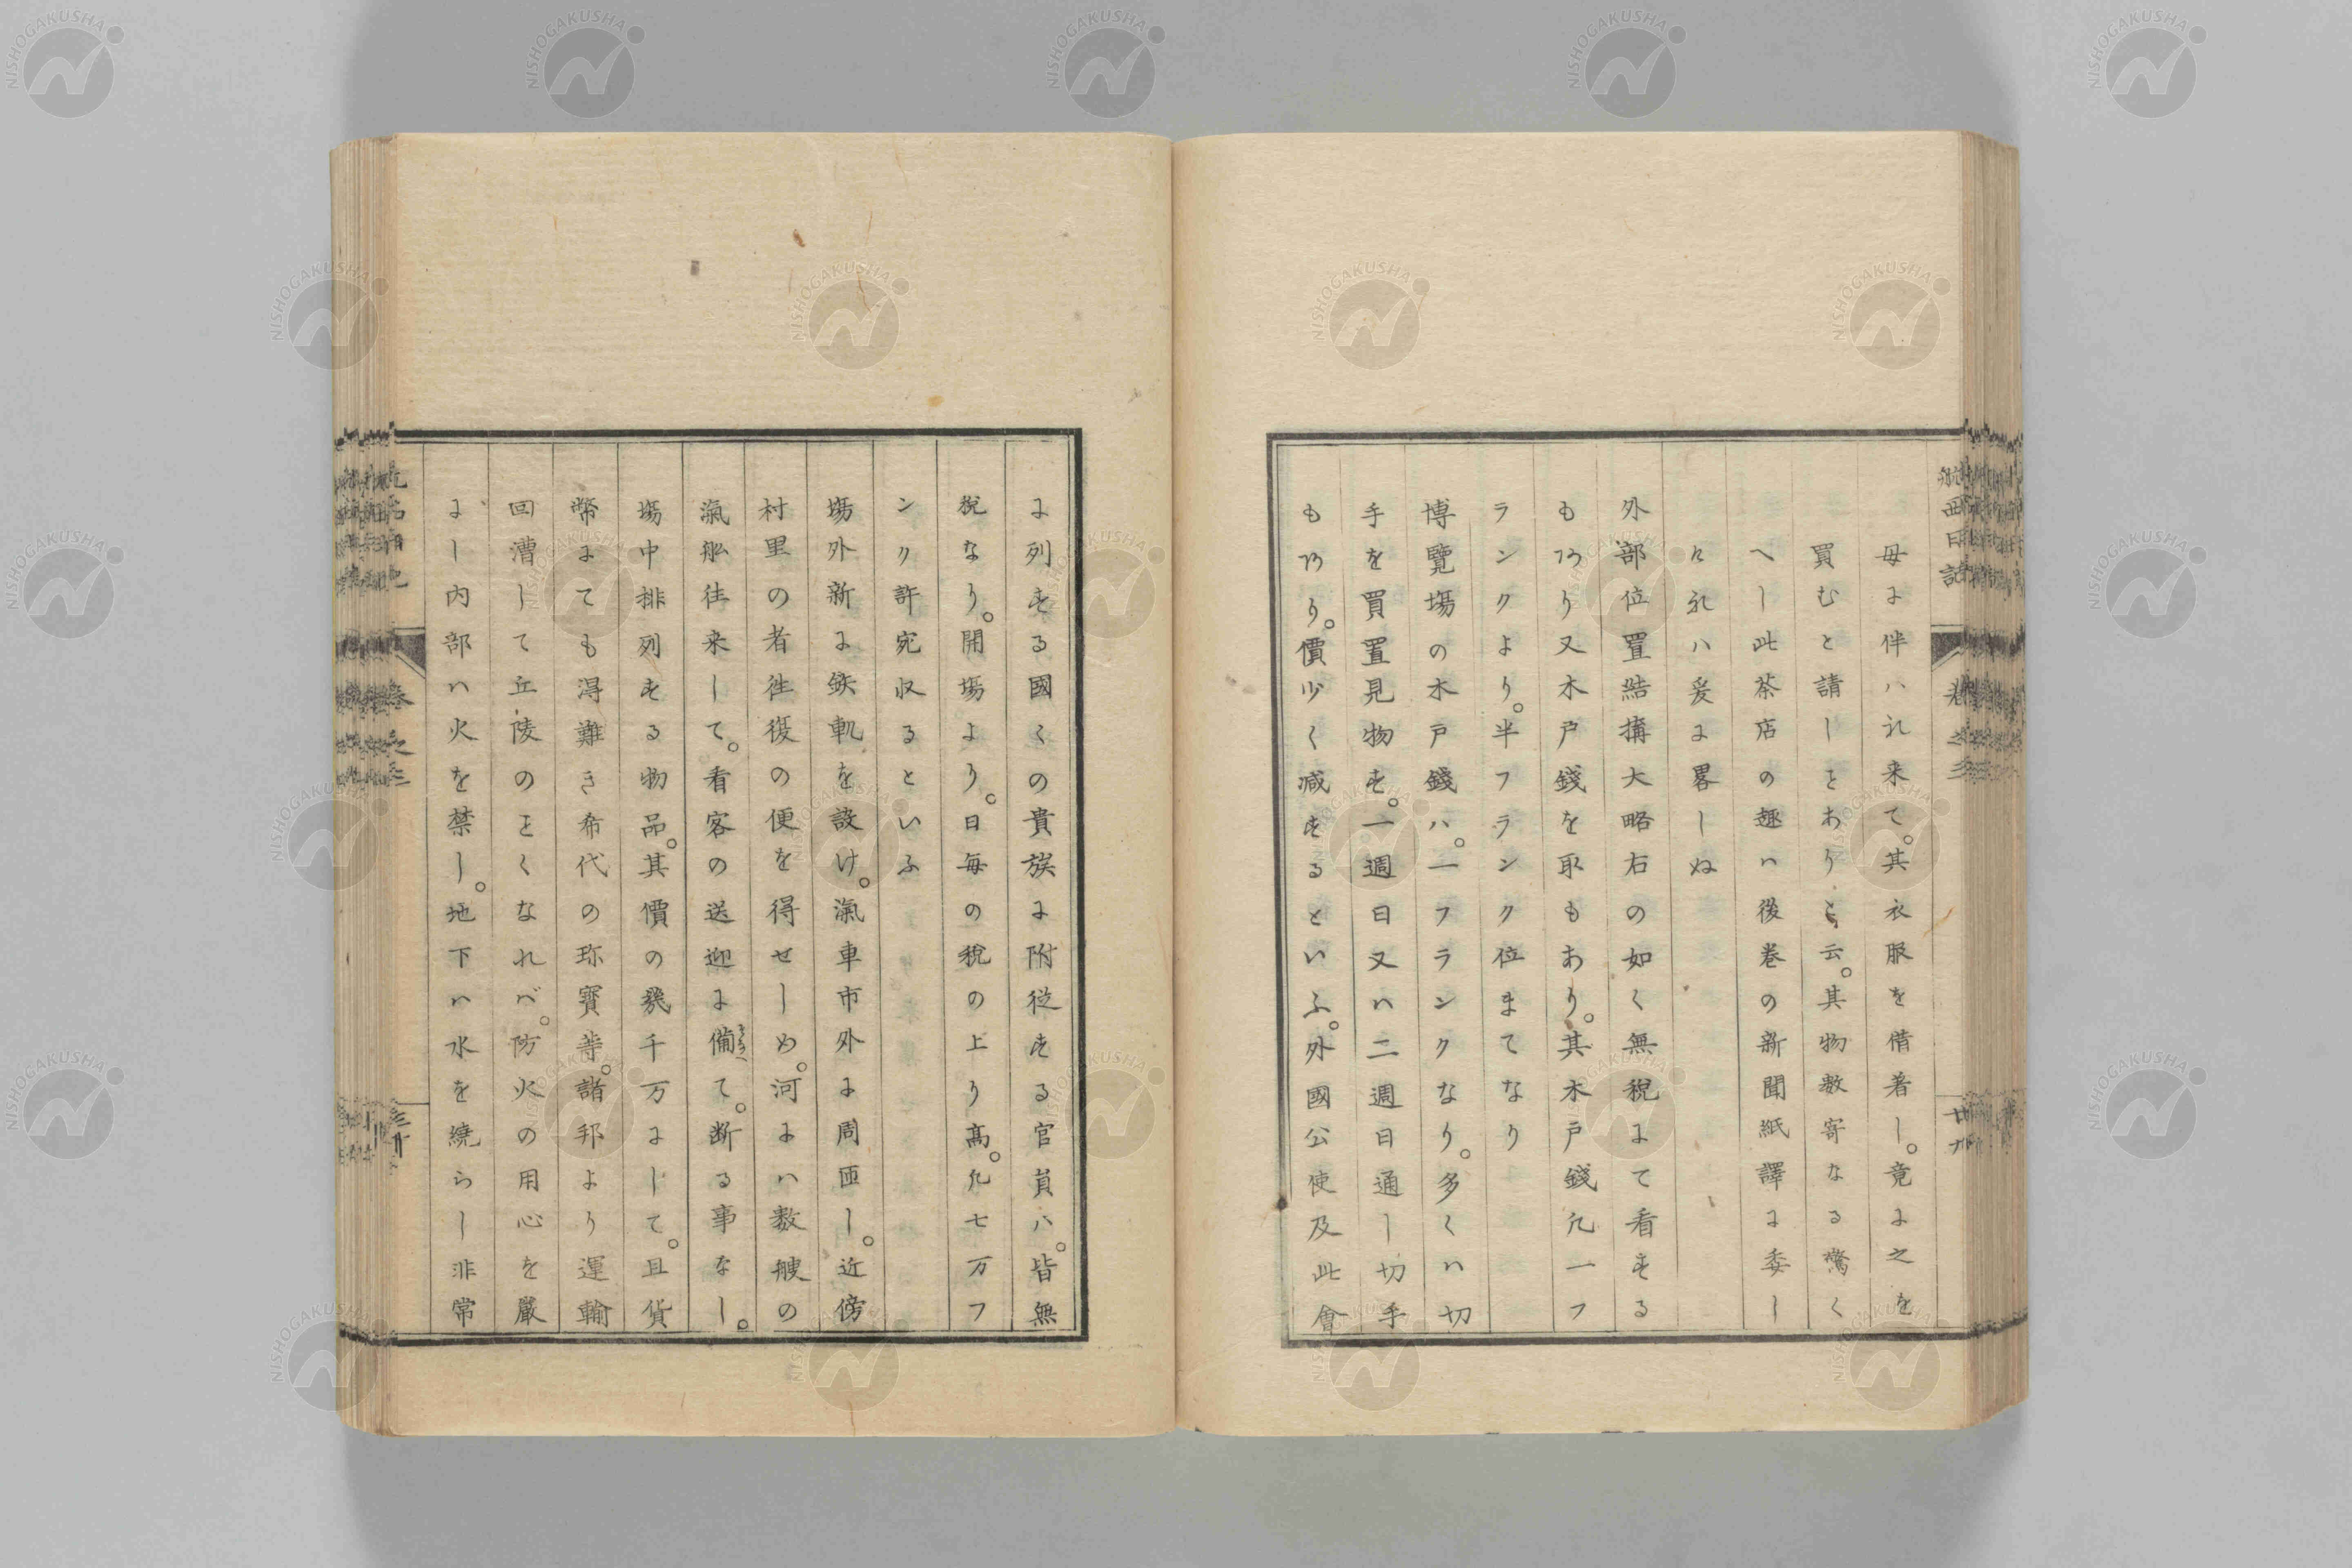 航西日記
卷之三
廿九
母に伴ハれ来て。其衣服を借着し。竟に之を
買むと請しヿありと云。其物數寄なる驚く
へし此茶店の趣ハ後巻の新聞紙譯に委し
けれハ爰に畧しぬ
外部位置結搆大略右の如く無税にて看する
もあり又木戸錢を取もあり。其木戸錢凡一フ
ランクより。半フランク位まてなり
博覽塲の木戸錢ハ。一フランクなり。多くハ切
手を買置見物す。一週日又ハ二週日通し切手
もあり。價少く减するといふ。外國公使及此會
に列する國くの貴族に附從する官員ハ。皆無
税なり。開塲より。日毎の税の上り高。凡七万フ
ンク許宛収るといふ
塲外新に鉄軌を設け。滊車市外に周匝し。近傍
村里の者徃復の便を得せしめ。河にハ数艘の
滊舩徃来して。看客の送迎に備て。断る事なし。
塲中排列する物品。其價の幾千万にして。且貨
幣にても得難き希代の珎寳等。諸邦より運輸
回漕して丘陵のヿくなれバ。防火の用心を嚴
にし内部ハ火を禁し。地下ハ水を繞らし非常
卷之三
三十